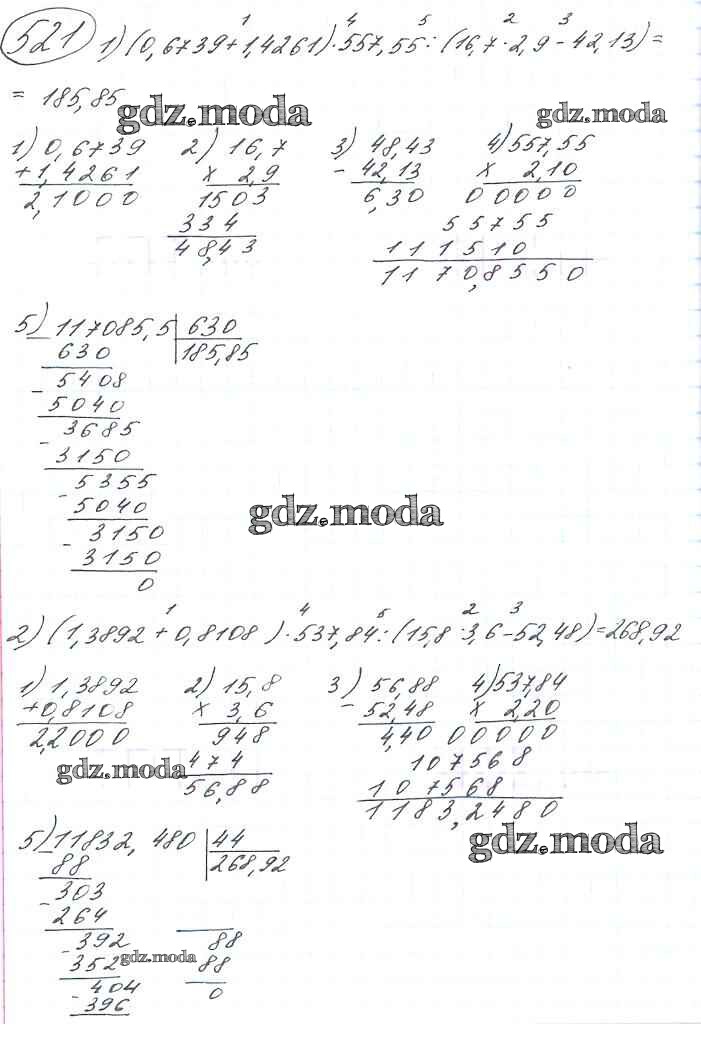 521 1) (0,6739+1,4261)·557,55:(16,7·2,9-42,13)=
1 4 5 2 3
= 185,85
gdz.moda
gdz.moda
1) 0,6739
+1,4261
2,1000
2) 16,7
x 2,9
1503
334
48,43
3) 48,43
- 42,13
6,30
4) 557,55
x 2,10
00000
55755
111510
1170,8550
5) 117085,5 | 630
630 185,85
- 5408
5040
- 3685
3150
- 5355
5040
- 3150
3150
0
gdz.moda
1 4 5 2 3
2) (1,3892+0,8108)·537,84:(15,8·3,6-52,48)=268,92
1) 1,3892
+0,8108
2,2000
2) 15,8
x 3,6
948
474
56,88
3) 56,88
- 52,48
4,40
4) 537,84
x 2,20
00000
107568
107568
1183,2480
gdz.moda
gdz.moda
5) 11832,480 | 44
88 268,92
303
- 264
- 392
352
- 404
396
88
88
0
gdz.moda